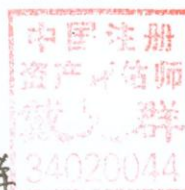 中国注册
资产评估师
群
34020044